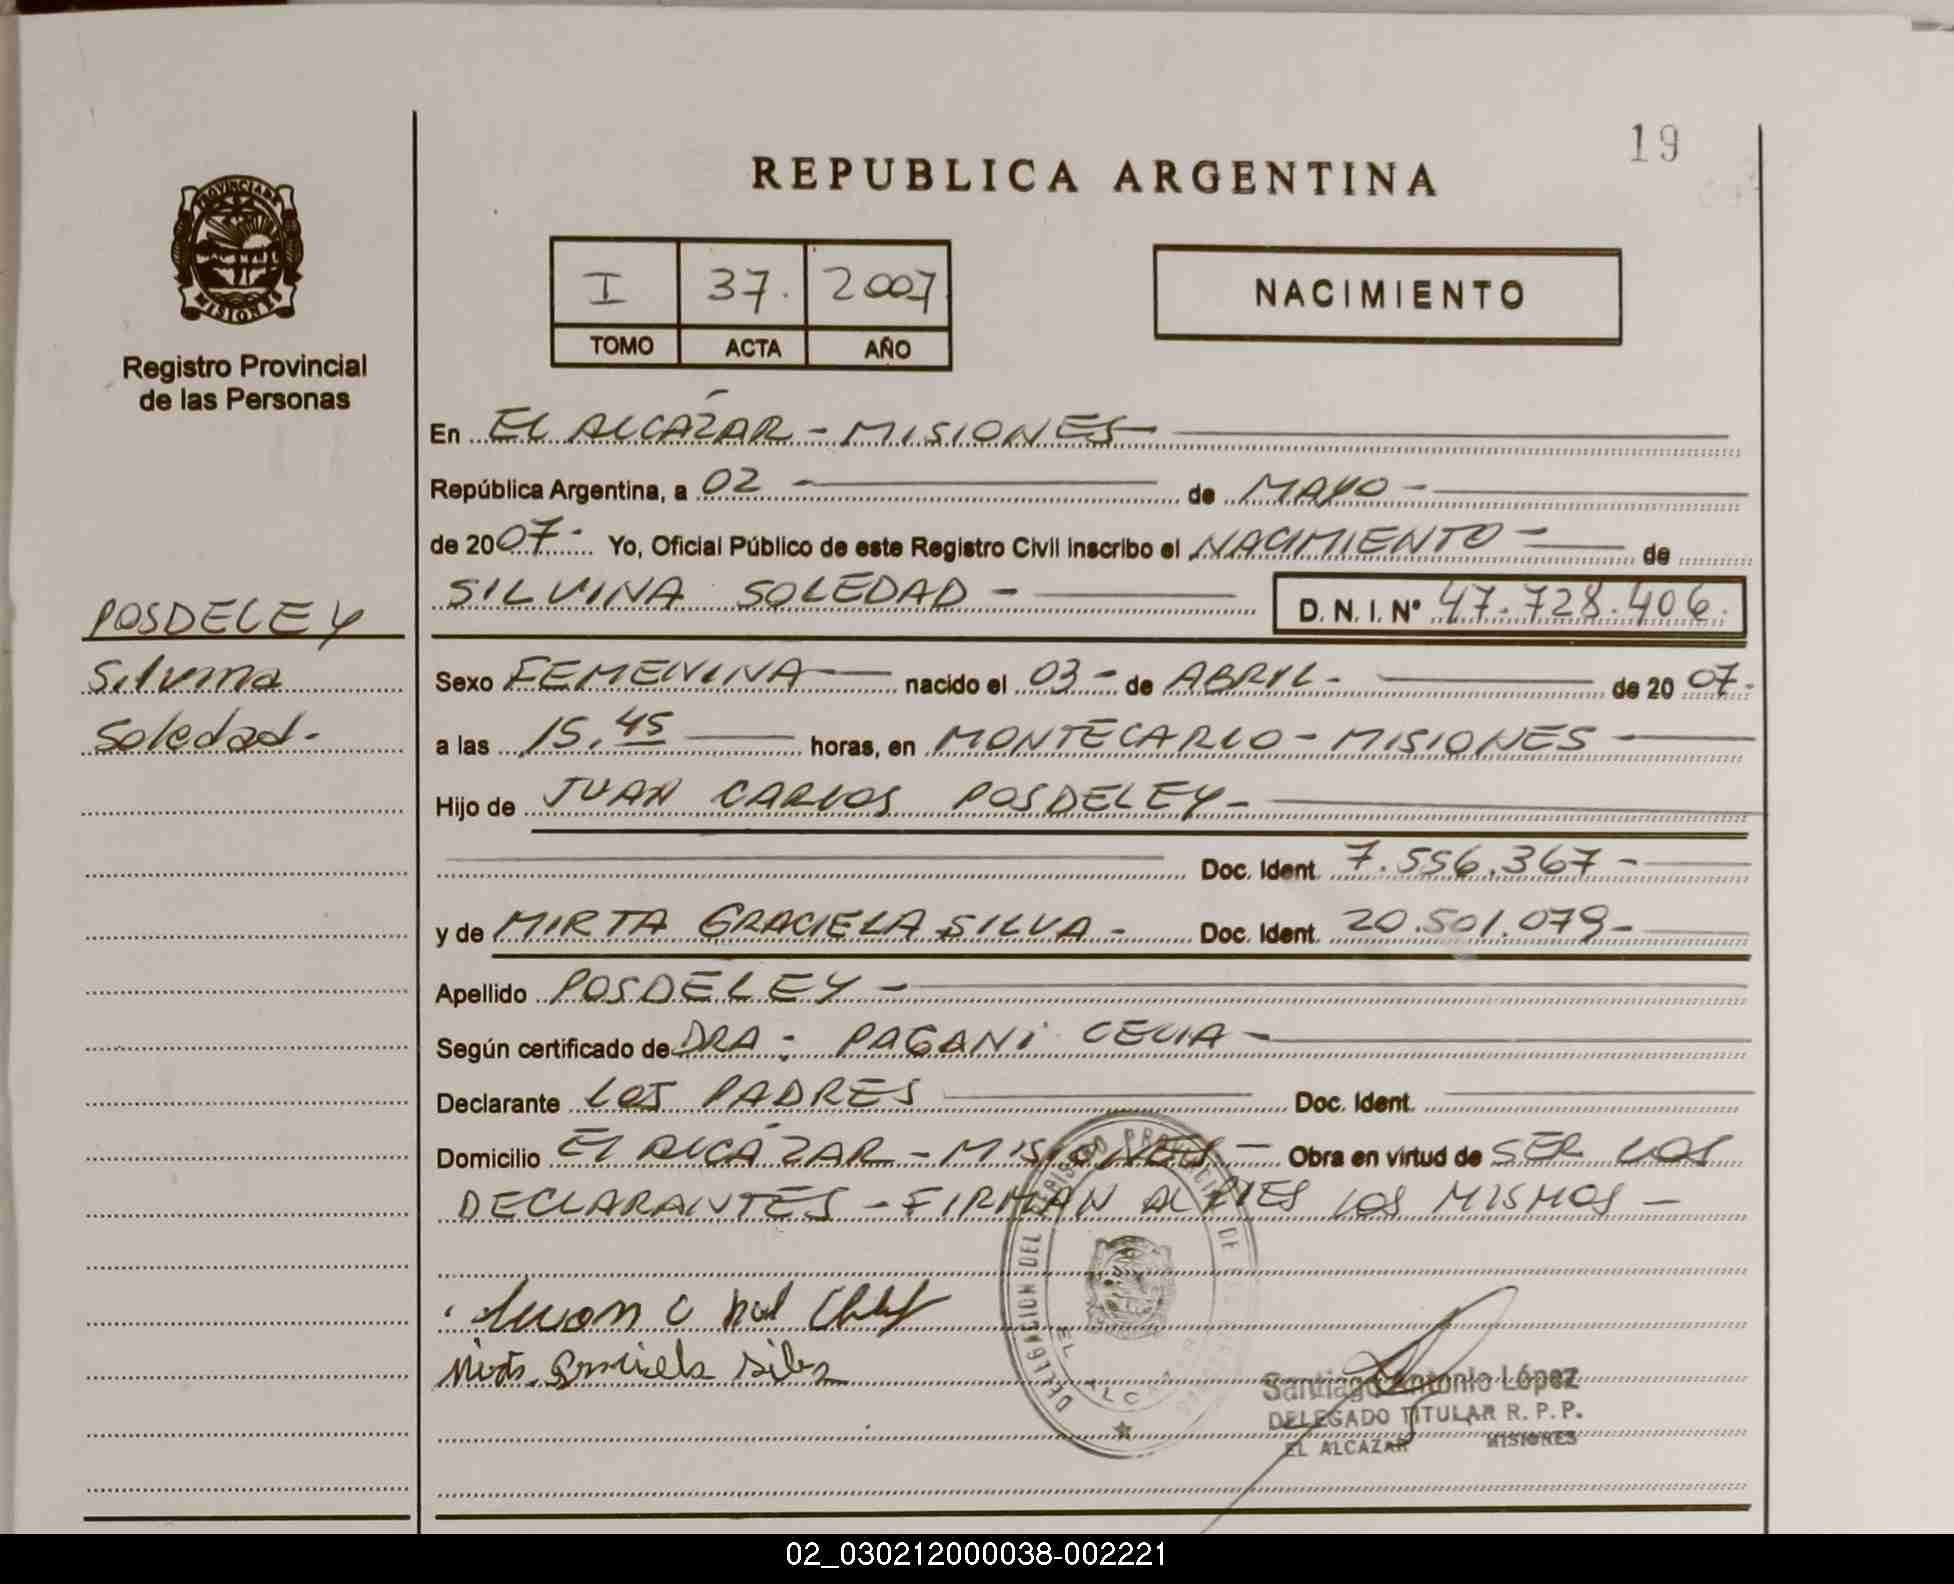 19
REPUBLICA ARGENTINA
PROVINCIA DE
MISIONES
Registro Provincial
de las Personas
I 37. 2007
TOMO ACTA AÑO
NACIMIENTO
En EL ALCÁZAR - MISIONES
República Argentina, a 02 - de MAYO -
de 2007- Yo, Oficial Público de este Registro Civil inscribo el NACIMIENTO - de
SILVINA SOLEDAD - D. N. I. Nº 47.728.406.
POSDELEY
Silvina
Soledad.
Sexo FEMENINA nacido el 03 - de ABRIL - de 2007-
a las 15,45 horas, en MONTECARLO - MISIONES
Hijo de JUAN CARLOS POSDELEY -
Doc. Ident. 7.556.367 -
y de MIRTA GRACIELA SILVA - Doc. Ident. 20.501.079 -
Apellido POSDELEY -
Según certificado de DRA: PAGANI CELIA -
Declarante LOS PADRES Doc. Ident.
Domicilio EL ALCÁZAR - MISIONES - Obra en virtud de SER LOS
DECLARANTES - FIRMAN AL PIES LOS MISMOS -
DELEGACION DEL REGISTRO PROVINCIAL DE
EL ALCAZAR
Juan C
Mirta Graciela Silva
Santiago Antonio López
DELEGADO TITULAR R. P. P.
EL ALCAZAR MISIONES
02_030212000038-002221